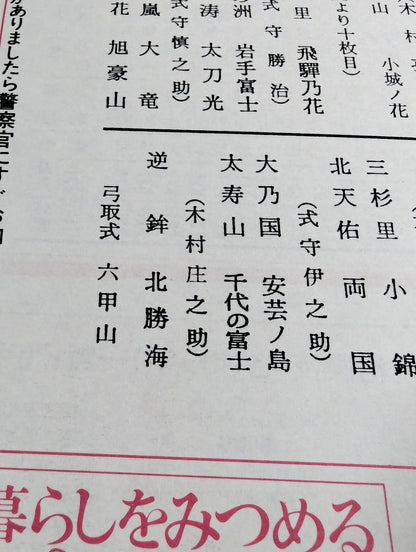 木村
山 小城ノ花
より十枚目）
里 飛驒乃花
式守勝治）
洲 岩手富士
濤 太刀光
式守慎之助）
嵐 大竜
花 旭豪山
三杉里 小錦
北天佑 両国
（式守伊之助）
大乃国 安芸ノ島
太寿山 千代の富士
（木村庄之助）
逆鉾 北勝海
弓取式 六甲山
がありましたら警察官にすぐ
暮らしをみつめる